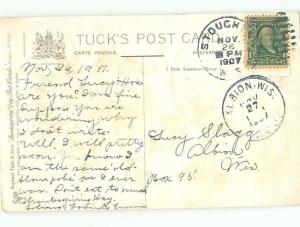 TUCK'S POST CARD
CARTE POSTALE
STOUGH
NOV.
26
8 PM
1907
WIS.
ALBION, WIS.
NOV
27
1907
Nov. 26, 1907.
Friend Lucy:- How
are you? I am fine.
Suppose you are
wondering why
I don't write.
Well, I will pretty
soon. You know I
am the same old
slow poke as I ever
was. Don't eat too much
Thanksgiving Day.
Lucy Slagg
Albion
Wis.
Box 95.